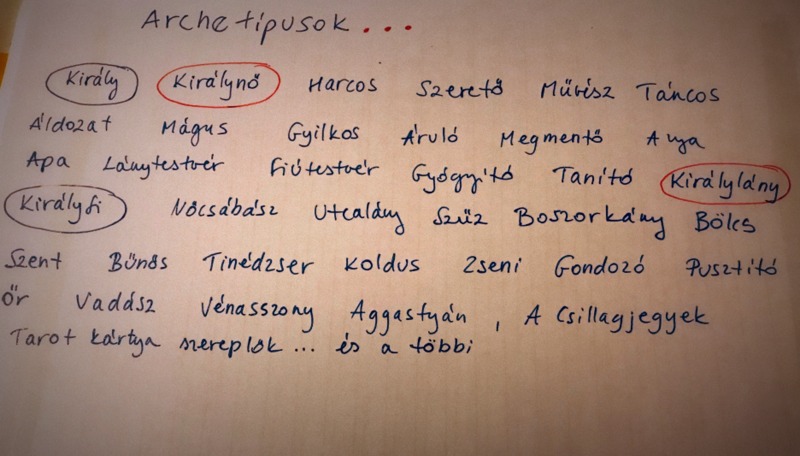 Archetípusok...
Király Királynő Harcos Szerető Művész Táncos
Áldozat Mágus Gyilkos Áruló Megmentő Anya
Apa Lánytestvér Fiútestvér Gyógyító Tanító Királylány
Királyfi Nőcsábász Utcalány Szűz Boszorkány Bölcs
Szent Bűnös Tinédzser Koldus Zseni Gondozó Pusztító
Őr Vadász Vénasszony Aggastyán, A Csillagjegyek
Tarot kártya szereplők... és a többi